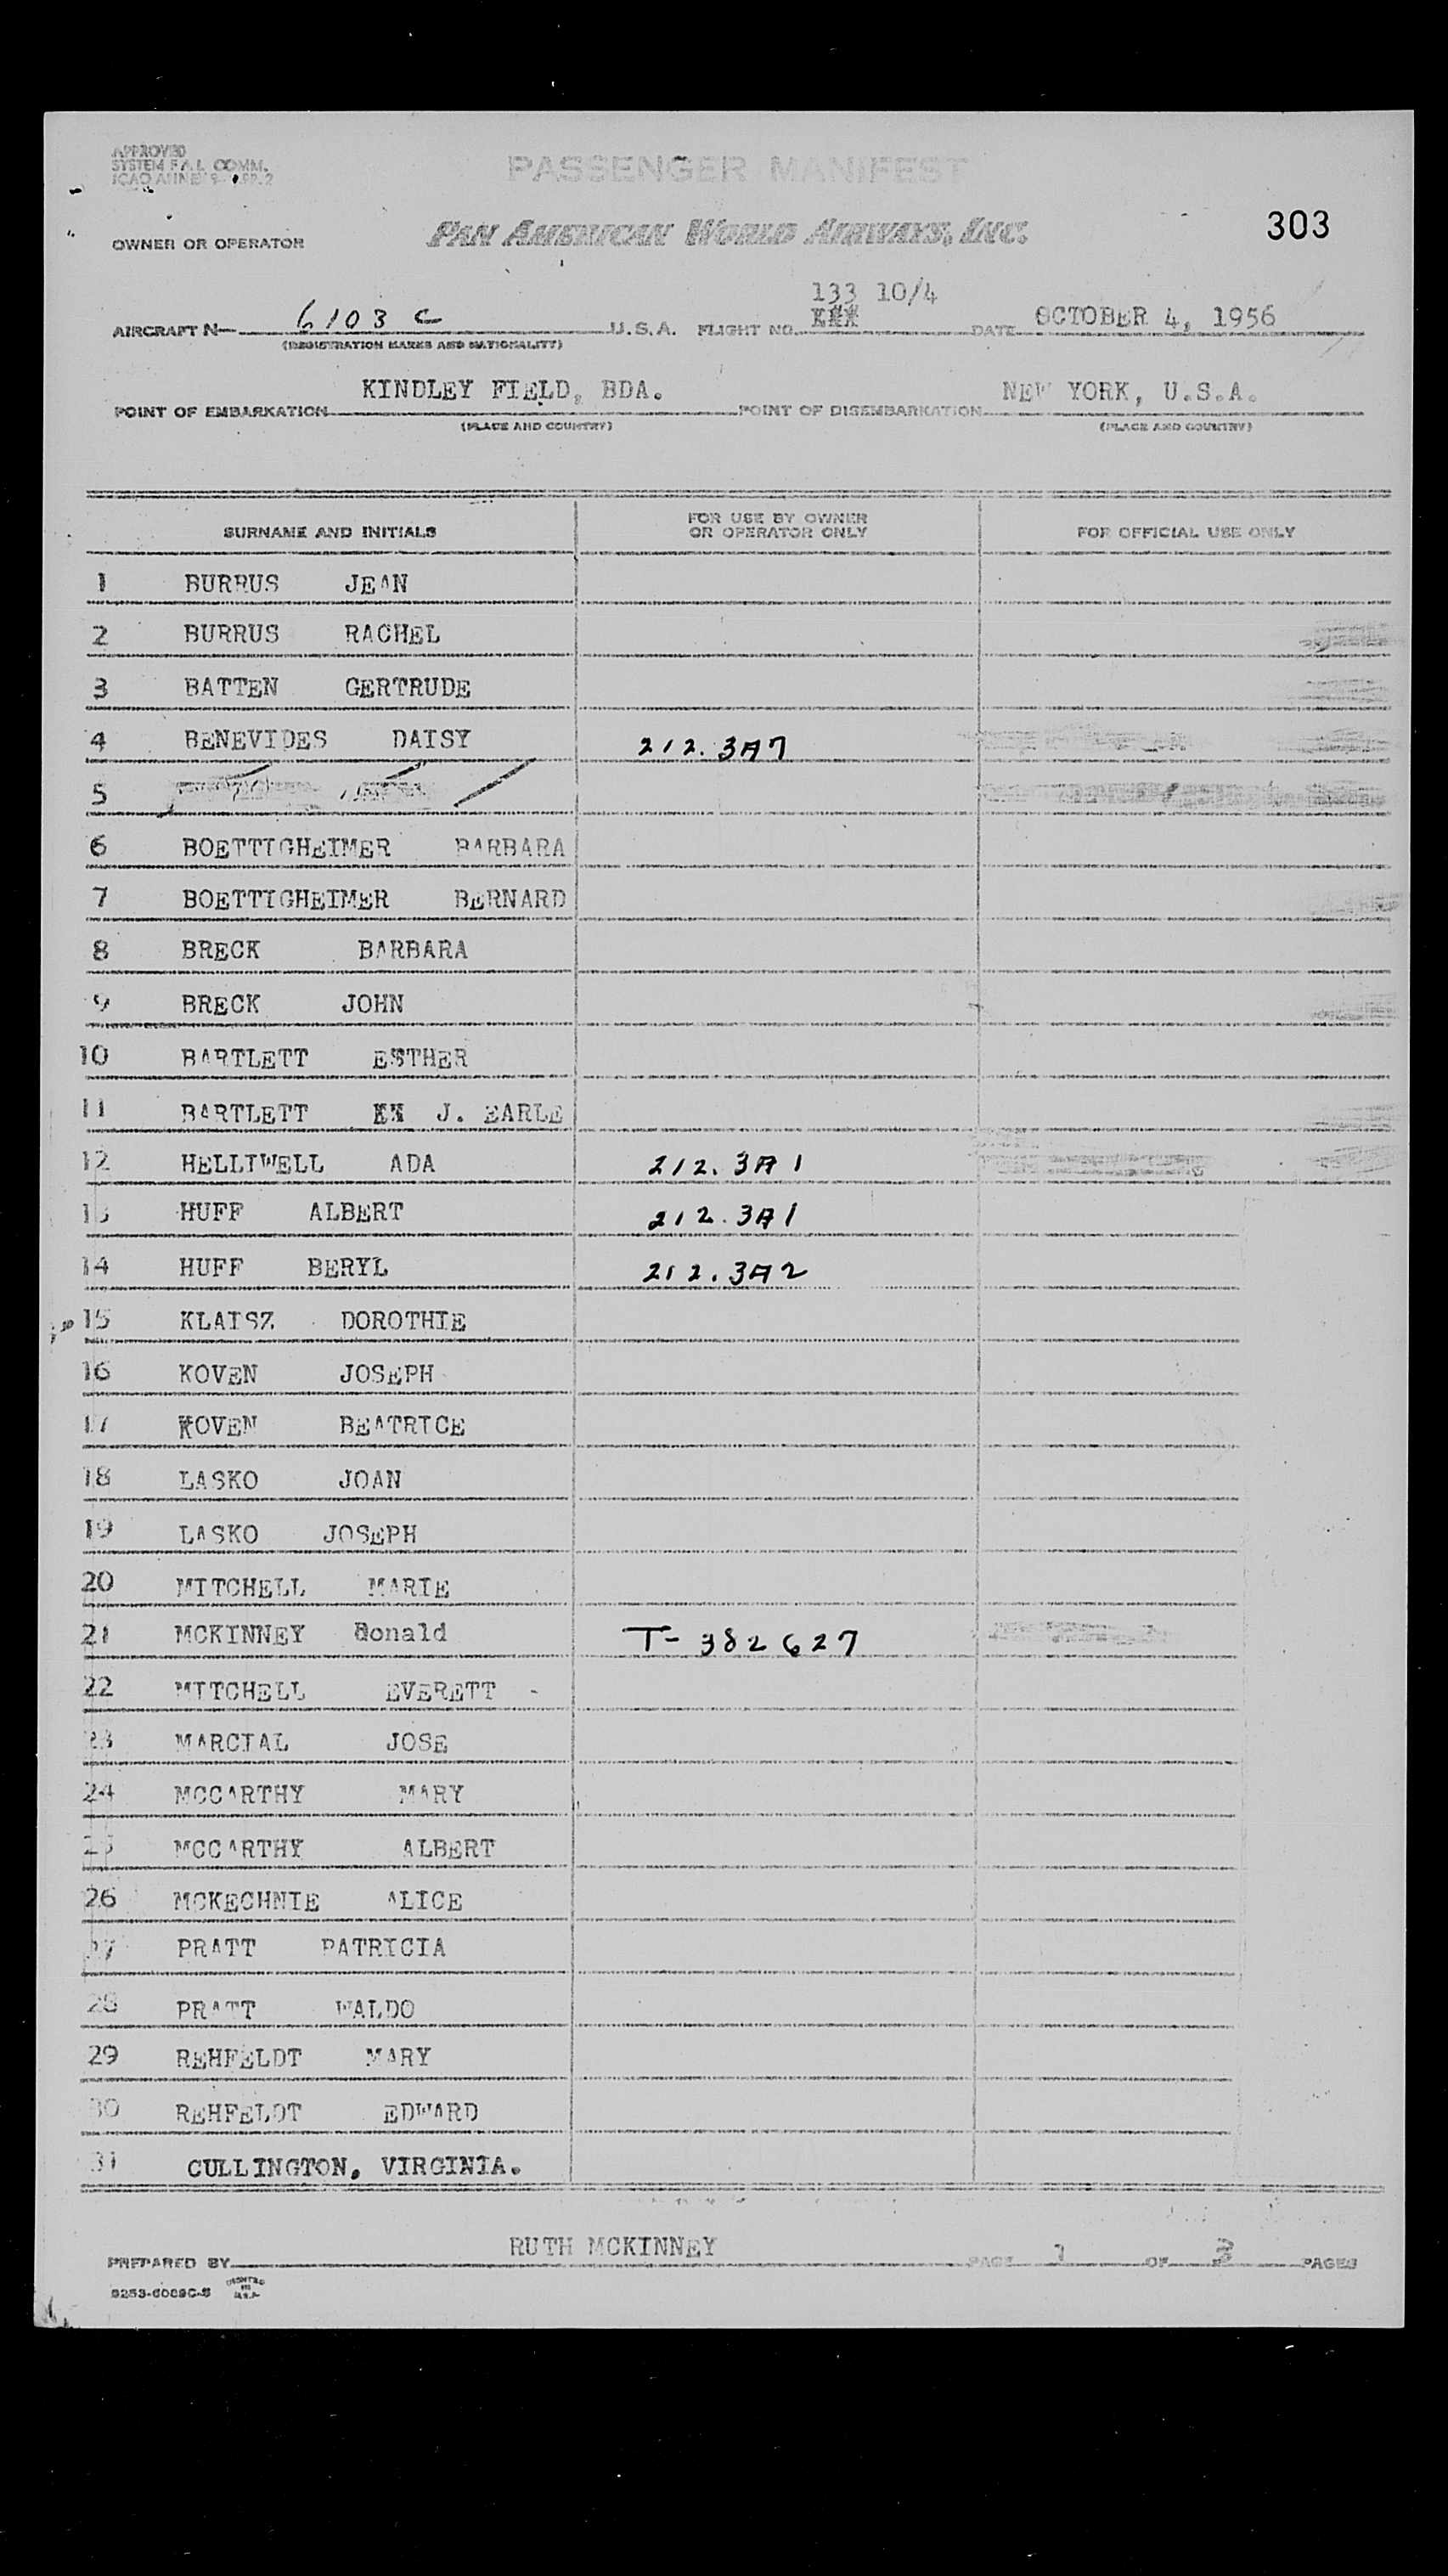 APPROVED
SYSTEM F.A.L. COMM.
ICAO ANNEX 9- APP. 2
PASSENGER MANIFEST
303
OWNER OR OPERATOR PAN AMERICAN WORLD AIRWAYS, INC.
133 10/4
AIRCRAFT N— 6103 C U.S.A. FLIGHT NO. XXX DATE OCTOBER 4, 1956
(REGISTRATION MARKS AND NATIONALITY)
POINT OF EMBARKATION KINDLEY FIELD, BDA. POINT OF DISEMBARKATION NEW YORK, U.S.A.
(PLACE AND COUNTRY) (PLACE AND COUNTRY)
SURNAME AND INITIALS FOR USE BY OWNER OR OPERATOR ONLY FOR OFFICIAL USE ONLY
1 BURRUS JEAN
2 BURRUS RACHEL
3 BATTEN GERTRUDE
4 BENEVIDES DAISY 212.3A7
5
6 BOETTIGHEIMER BARBARA
7 BOETTIGHEIMER BERNARD
8 BRECK BARBARA
9 BRECK JOHN
10 BARTLETT ESTHER
11 BARTLETT XX J. EARLE
12 HELLIWELL ADA 212.3A1
13 HUFF ALBERT 212.3A1
14 HUFF BERYL 212.3A2
15 KLAISZ DOROTHIE
16 KOVEN JOSEPH
17 KOVEN BEATRICE
18 LASKO JOAN
19 LASKO JOSEPH
20 MITCHELL MARIE
21 MCKINNEY Donald T-382627
22 MITCHELL EVERETT -
23 MARCIAL JOSE
24 MCCARTHY MARY
25 MCCARTHY ALBERT
26 MCKECHNIE ALICE
27 PRATT PATRICIA
28 PRATT WALDO
29 REHFELDT MARY
30 REHFELDT EDWARD
31 CULLINGTON, VIRGINIA.
PREPARED BY RUTH MCKINNEY PAGE 1 OF 3 PAGES
9253-6089C-5 PRINTED IN U.S.A.